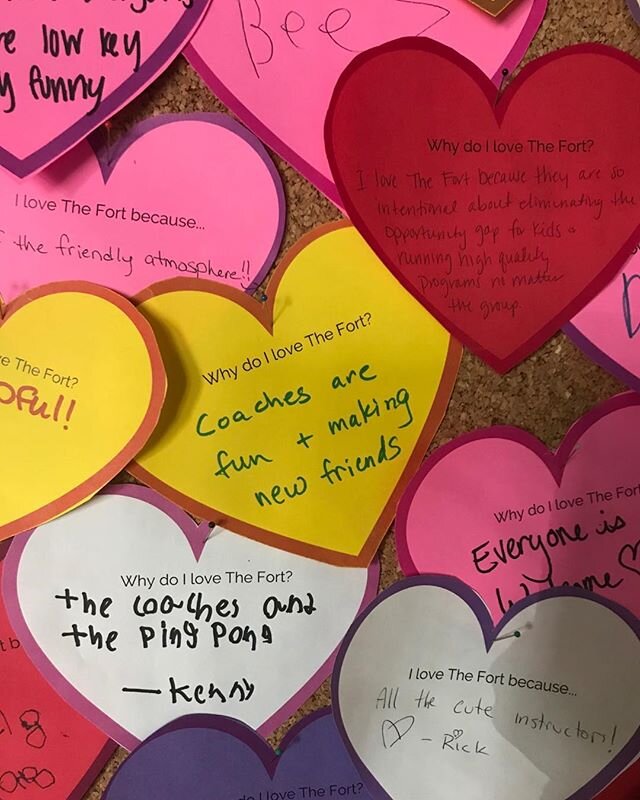 re low key
funny
Bee
Why do I love The Fort?
I love The Fort because they are so
intentional about eliminating the
opportunity gap for kids &
running high quality
programs no matter
the group.
I love The Fort because...
the friendly atmosphere!!
e The Fort?
pful!!
Why do I love The Fort?
Coaches are
fun + making
new friends
Why do I love The Fort
Everyone is
Welcome
Why do I love The Fort?
the coaches and
the Ping Pong
—Kenny
I love The Fort because...
All the cute instructors!
- Rick
t b
do I love The Fort?